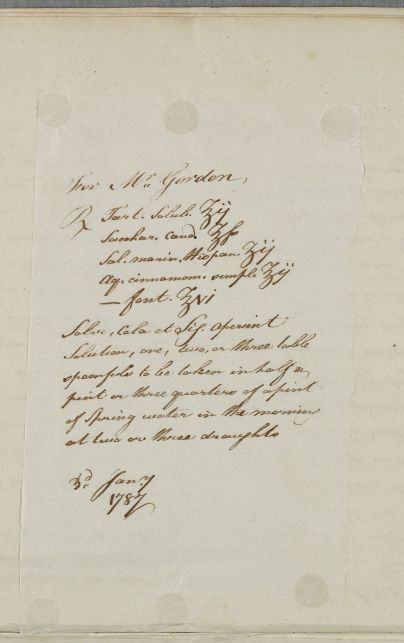 For Mr. Gordon,
℞ Tart. Solub. ℥ij
Sacchar. Cand. ℥ſs
Sal. marin. Hispan. ʒij
Aq. cinnamom. simpl. ℥ij
— font. ℥vi
Solve, Cola et Sig. Aperient
Solution, one, two, or three table
spoonfuls to be taken in half a
pint or three quarters of a pint
of Spring water in the morning
at two or three draughts
3d. Jany
1787